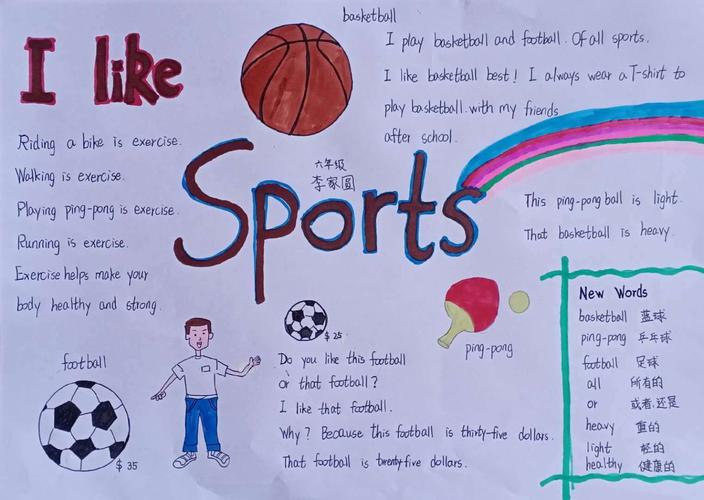 I like
Riding a bike is exercise.
Walking is exercise.
Playing ping-pong is exercise.
Running is exercise.
Exercise helps make your
body healthy and strong.
basketball
I play basketball and football. Of all sports.
I like basketball best! I always wear a T-shirt to
play basketball with my friends
after school.
Sports
六年级
李家圆
This ping-pong ball is light.
That basketball is heavy.
football
$35
$25
Do you like this football
or that football?
I like that football.
Why? Because this football is thirty-five dollars.
That football is twenty-five dollars.
ping-pong
New Words
basketball 蓝球
ping-pong 乒乓球
football 足球
all 所有的
or 或者.还是
heavy 重的
light 轻的
healthy 健康的